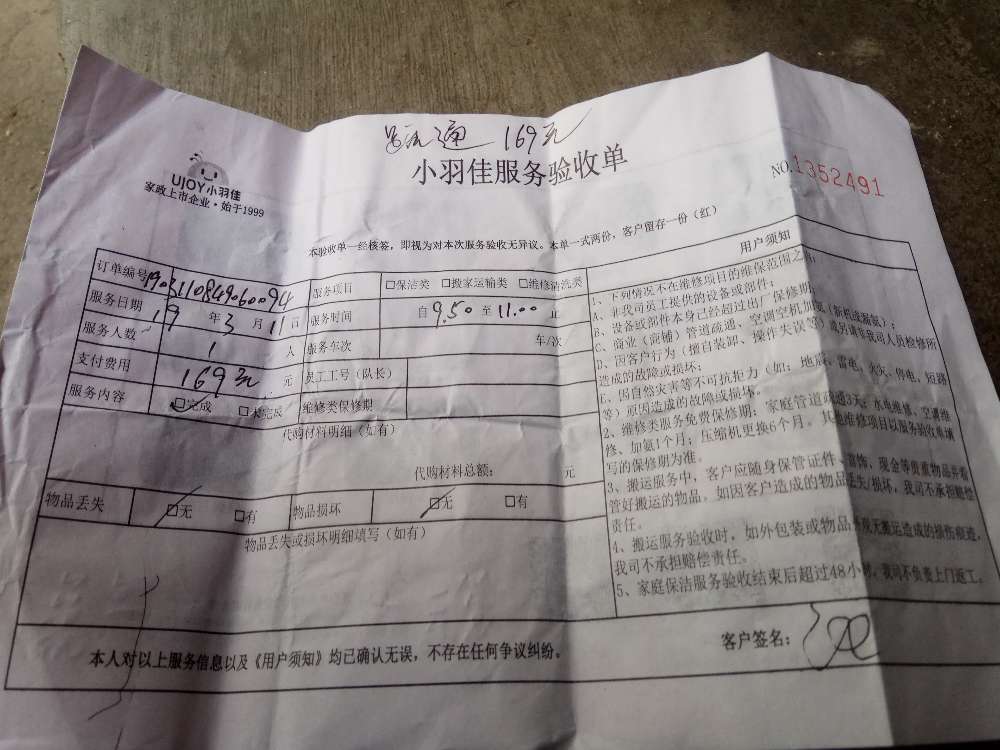 通 169元
小羽佳服务验收单
UJOY小羽佳
家政上市企业·始于1999
NO.1352491
本验收单一经核签，即视为对本次服务验收无异议。本单一式两份，客户留存一份（红）
订单编号 服务项目 □保洁类 □搬家运输类 □维修清洗类
服务日期 19年3月11日 服务时间 自9.50至11.00止
服务人数 1人 服务车次 车/次
支付费用 169元 元 员工工号（队长）
服务内容 □完成 □未完成 维修类保修期
代购材料明细（如有）
代购材料总额： 元
物品丢失 □无 □有 物品损坏 □无 □有
物品丢失或损坏明细填写（如有）
用户须知
1、下列情况不在维修项目的维保范围之内：
A、非我司员工提供的设备或部件；
B、设备或部件本身已经超过出厂保修期；
C、商业（商铺）管道疏通、空调空机加氨（新机或漏氨）；
D、因客户行为（擅自装卸、操作失误等）或另请非我司人员检修所
造成的故障或损坏；
E、因自然灾害等不可抗拒力（如：地震、雷电、火灾、停电、短路
等）原因造成的故障或损坏。
2、维修类服务免费保修期：家庭管道疏通3天；水电维修、空调维
修、加氨1个月；压缩机更换6个月。其他维修项目以服务验收单填
写的保修期为准。
3、搬运服务中，客户应随身保管证件、首饰、现金等贵重物品并看
管好搬运的物品。如因客户造成的物品丢失/损坏，我司不承担赔偿
责任。
4、搬运服务验收时，如外包装或物品外观无搬运造成的损伤痕迹，
我司不承担赔偿责任。
5、家庭保洁服务验收结束后超过48小时，我司不负责上门返工。
本人对以上服务信息以及《用户须知》均已确认无误，不存在任何争议纠纷。
客户签名：